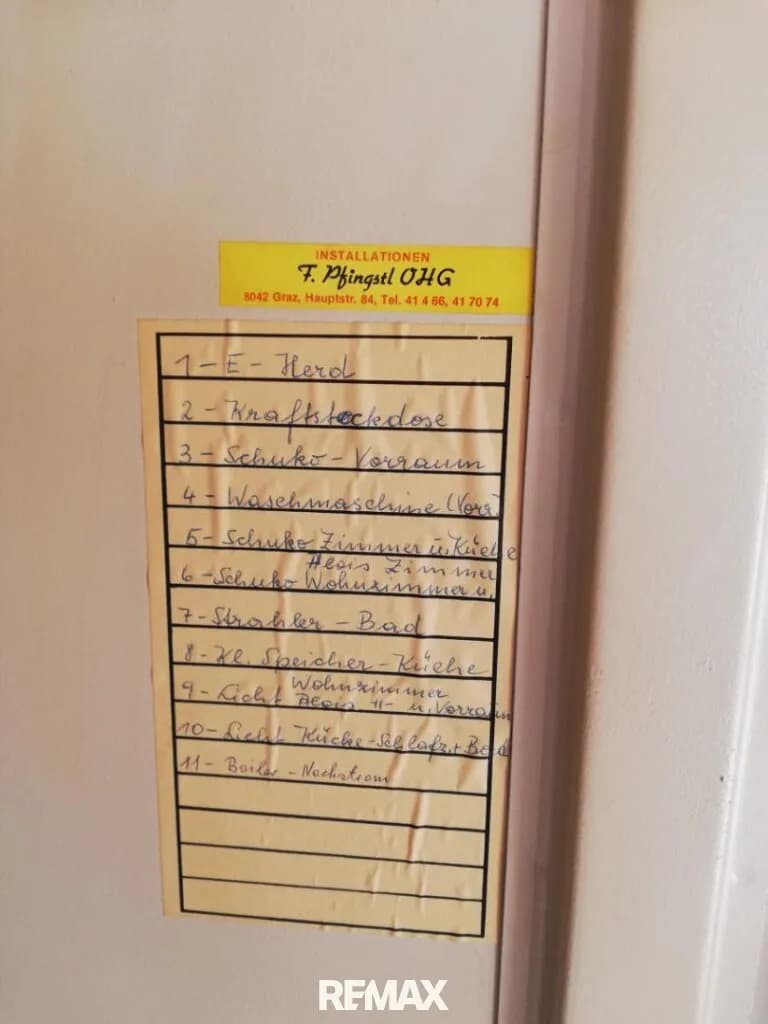 INSTALLATIONEN
F. Pfingstl OHG
8042 Graz, Hauptstr. 84, Tel. 41 4 66, 41 70 74
1 - E - Herd
2 - Kraftsteckdose
3 - Schuko - Vorraum
4 - Waschmaschine (Vorr.)
5 - Schuko Zimmer u. Küche
Alois Zimmer
6 - Schuko Wohnzimmer u.
7 - Strahler - Bad
8 - Kl. Speicher - Küche
Wohnzimmer
9 - Licht Alois -"- u. Vorraum
10 - Licht Küche - Schlafz. + Bad
11 - Boiler - Nachstrom
REMAX